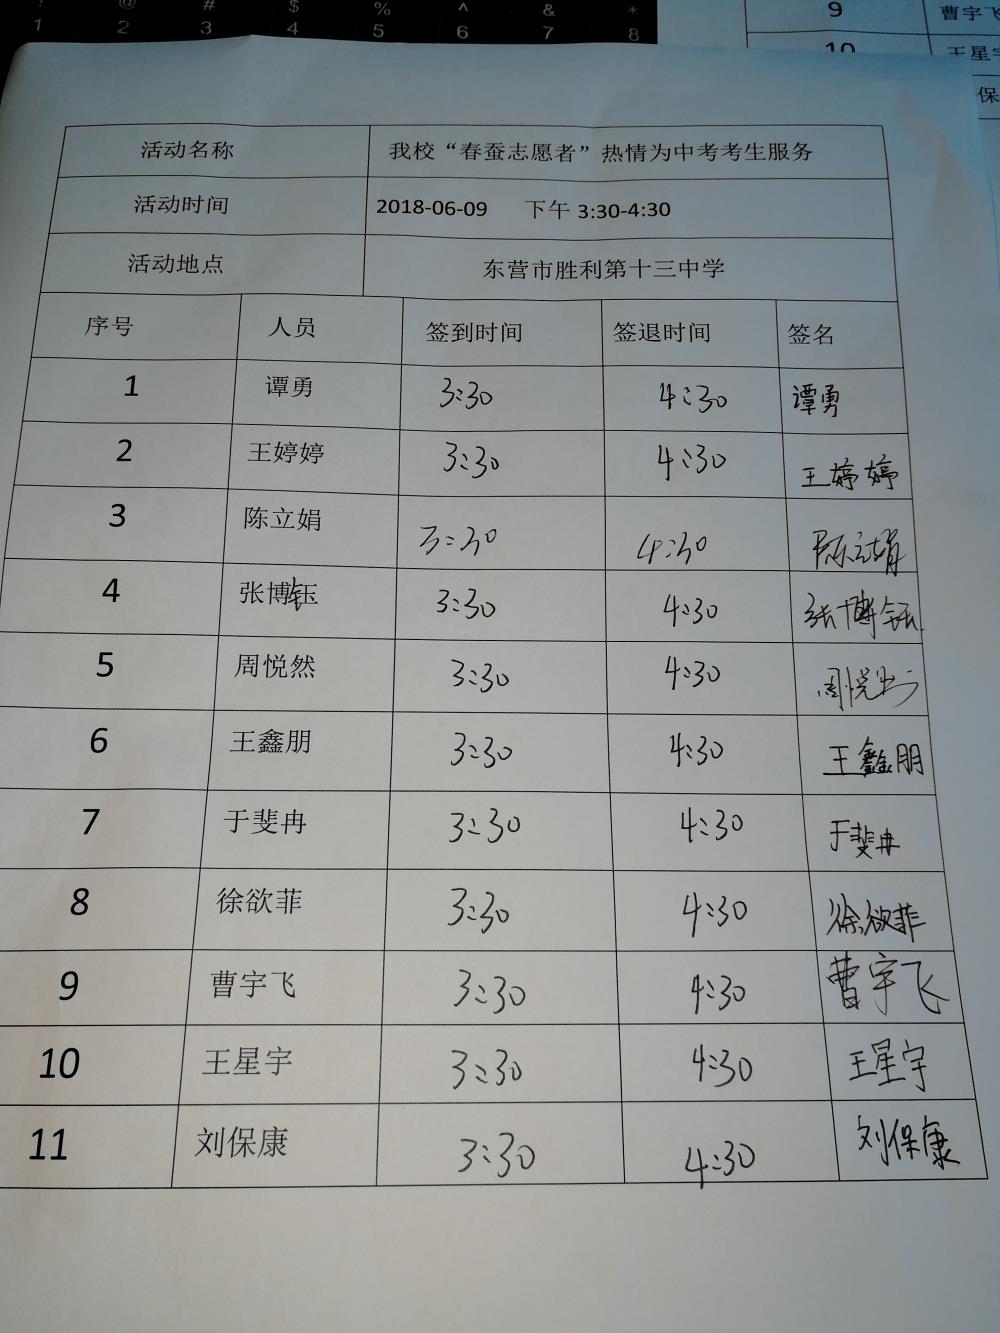 ! @ # $ % ^ & *
1 2 3 4 5 6 7 8
9 曹宇飞
10 王星宇
保
活动名称 我校“春蚕志愿者”热情为中考考生服务
活动时间 2018-06-09 下午 3:30-4:30
活动地点 东营市胜利第十三中学
序号 人员 签到时间 签退时间 签名
1 谭勇 3:30 4:30 谭勇
2 王婷婷 3:30 4:30 王婷婷
3 陈立娟 3:30 4:30 陈立娟
4 张博钰 3:30 4:30 张博钰
5 周悦然 3:30 4:30 周悦然
6 王鑫朋 3:30 4:30 王鑫朋
7 于斐冉 3:30 4:30 于斐冉
8 徐欲菲 3:30 4:30 徐欲菲
9 曹宇飞 3:30 4:30 曹宇飞
10 王星宇 3:30 4:30 王星宇
11 刘保康 3:30 4:30 刘保康